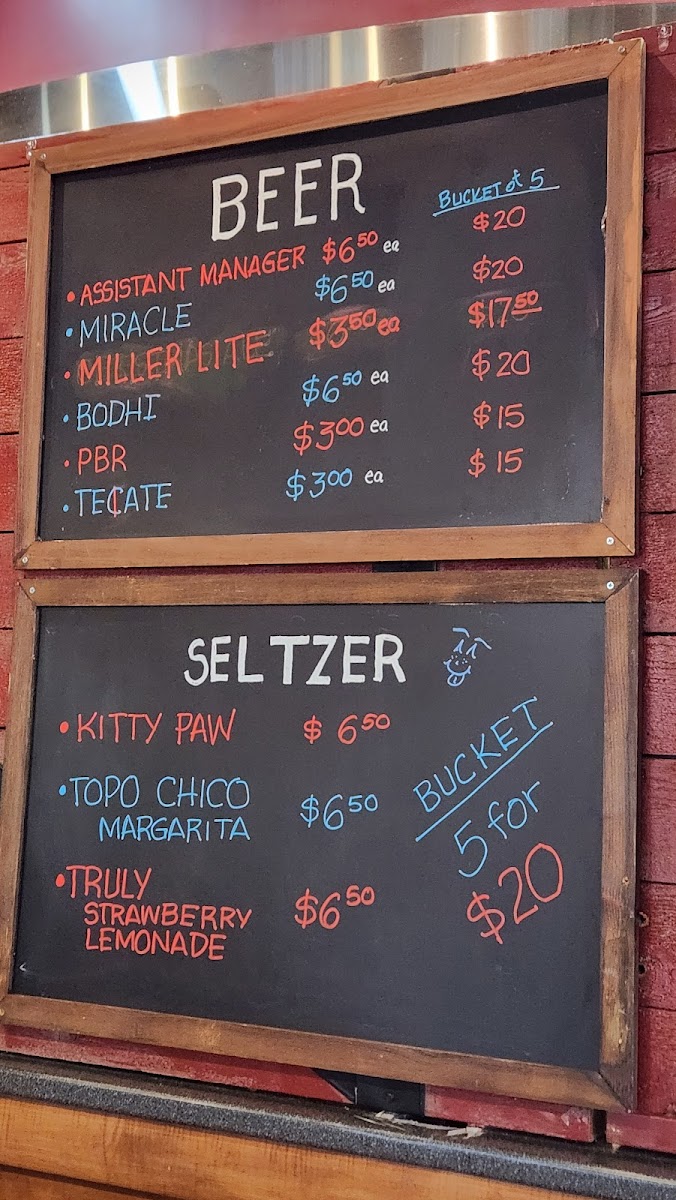 BEER
BUCKET of 5
• ASSISTANT MANAGER $6.50 ea $20
• MIRACLE $6.50 ea $20
• MILLER LITE $3.50 ea $17.50
• BODHI $6.50 ea $20
• PBR $3.00 ea $15
• TECATE $3.00 ea $15
SELTZER
• KITTY PAW $6.50
• TOPO CHICO $6.50
MARGARITA
• TRULY $6.50
STRAWBERRY
LEMONADE
BUCKET
5 for
$20